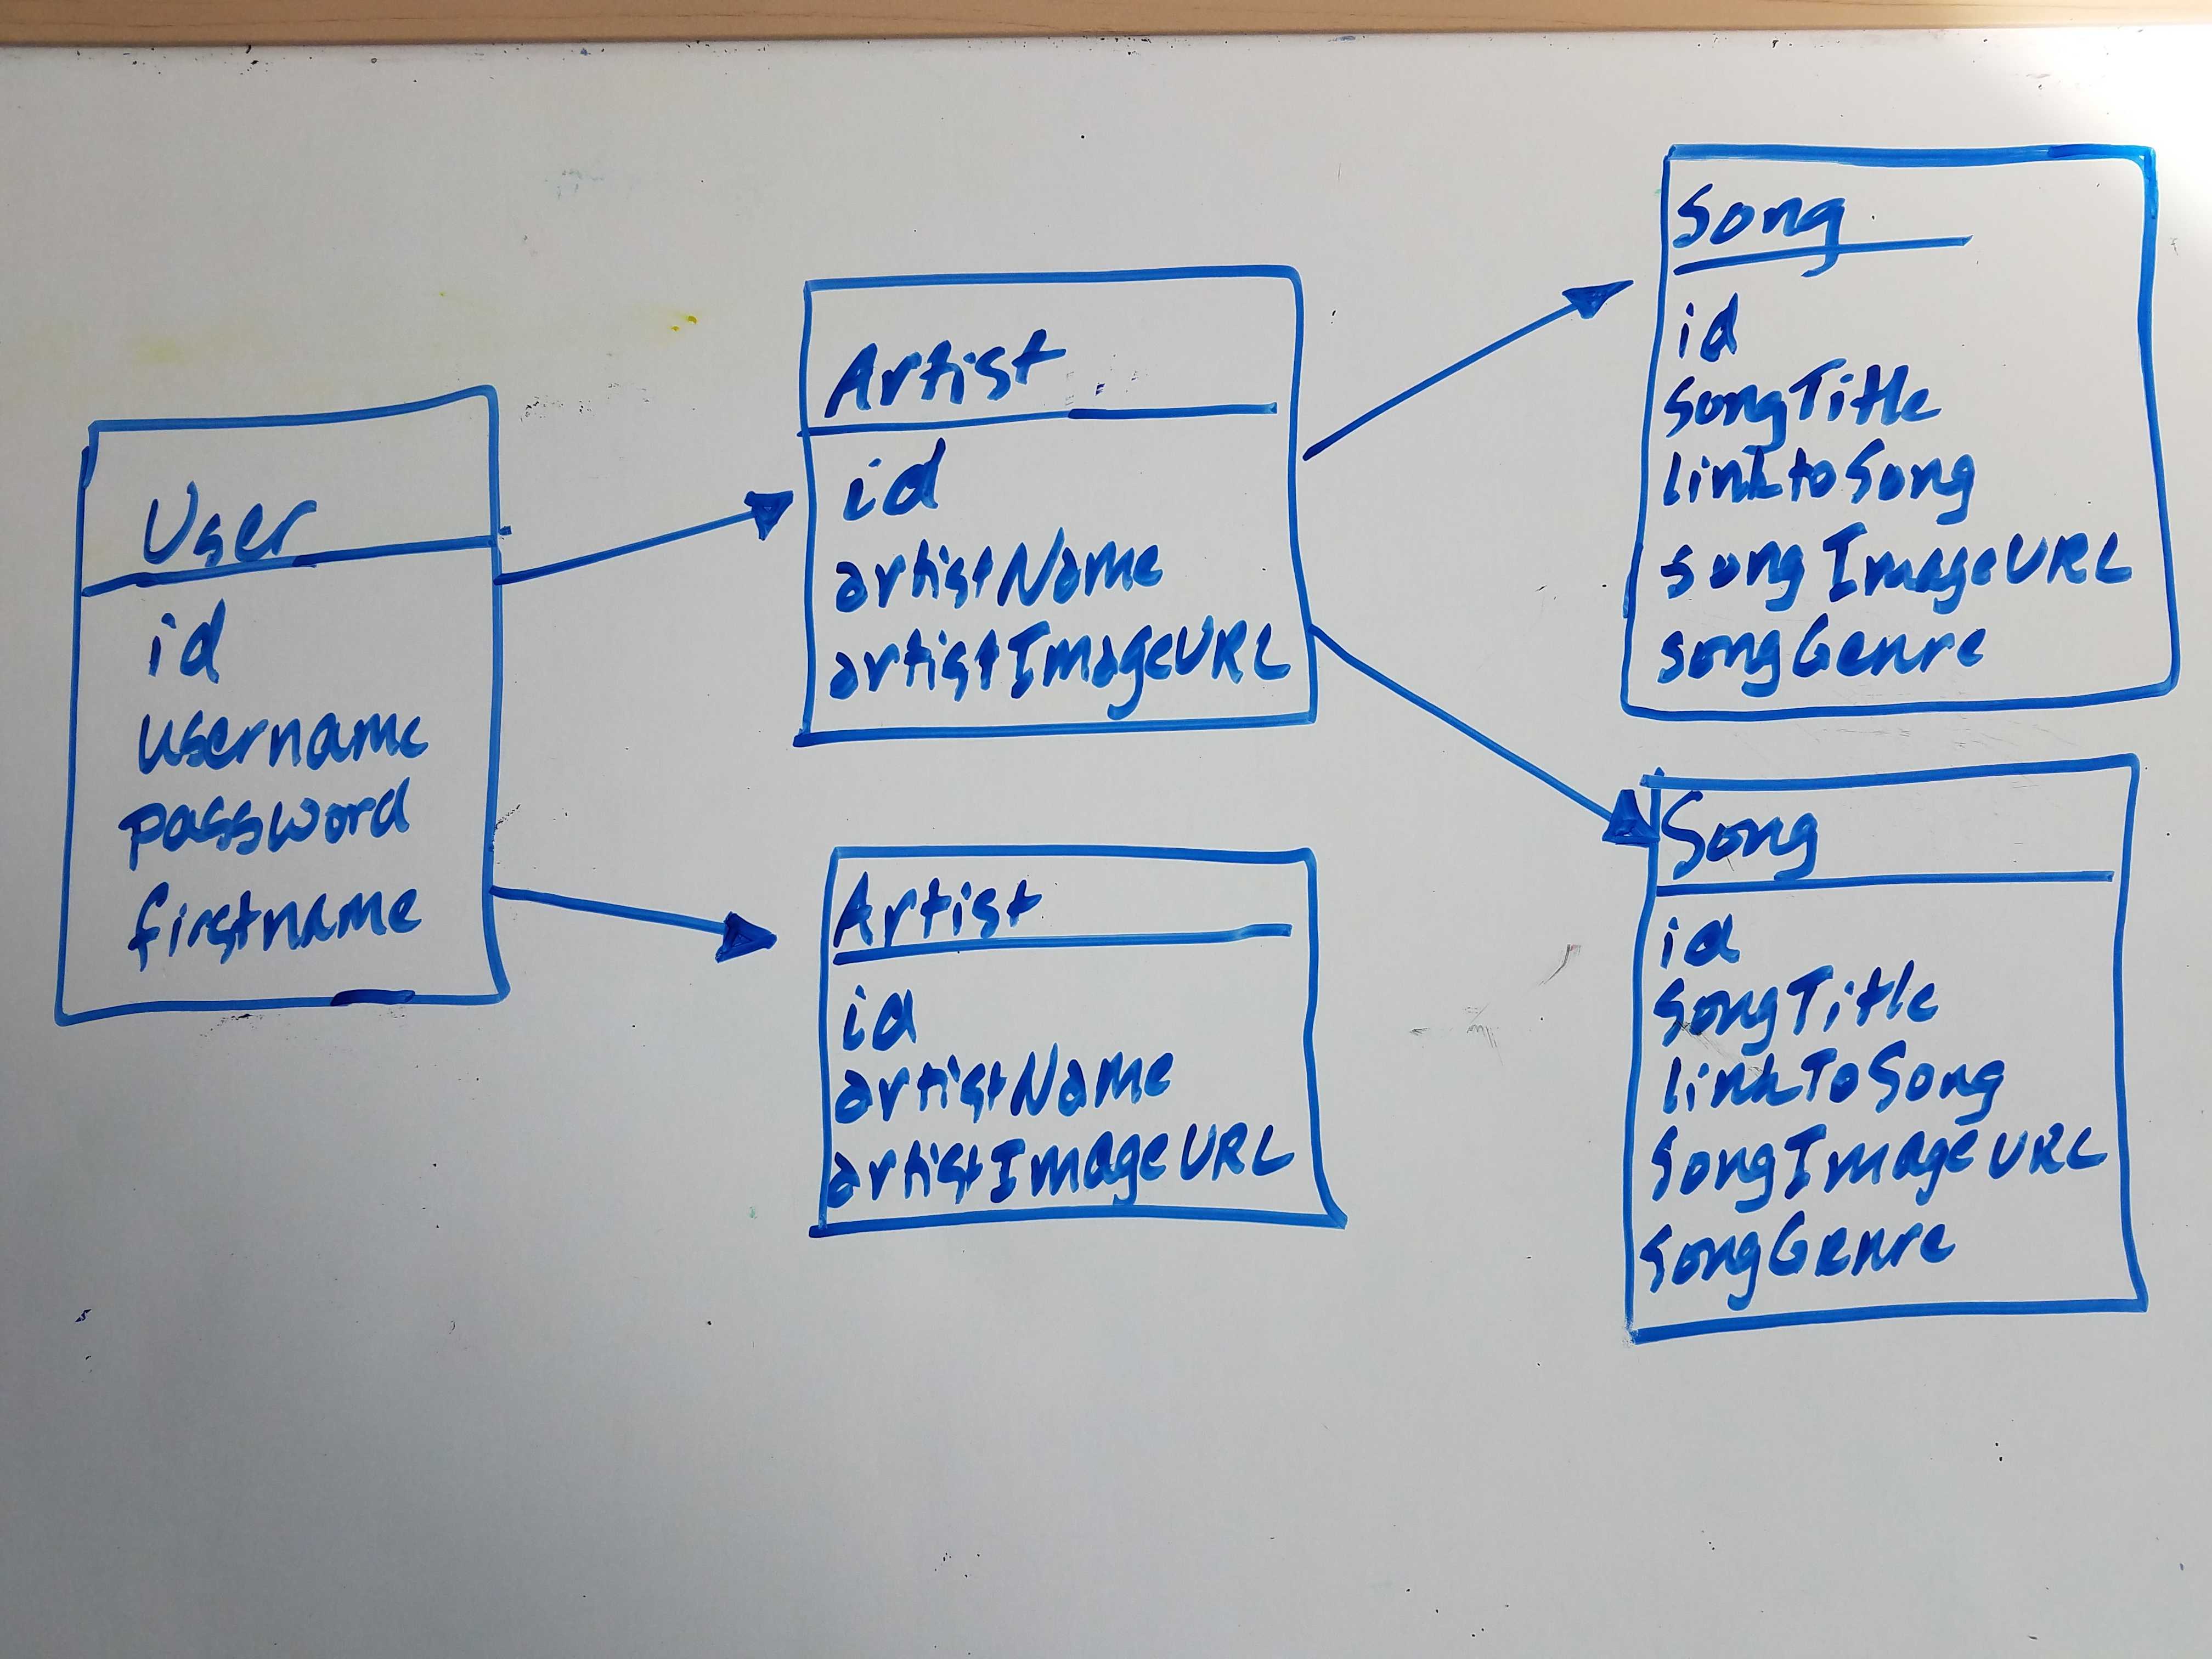 User
id
username
password
firstname
Artist
id
artistName
artistImageURL
Artist
id
artistName
artistImageURL
Song
id
songTitle
linktoSong
songImageURL
songGenre
Song
id
songTitle
linkToSong
songImageURL
songGenre